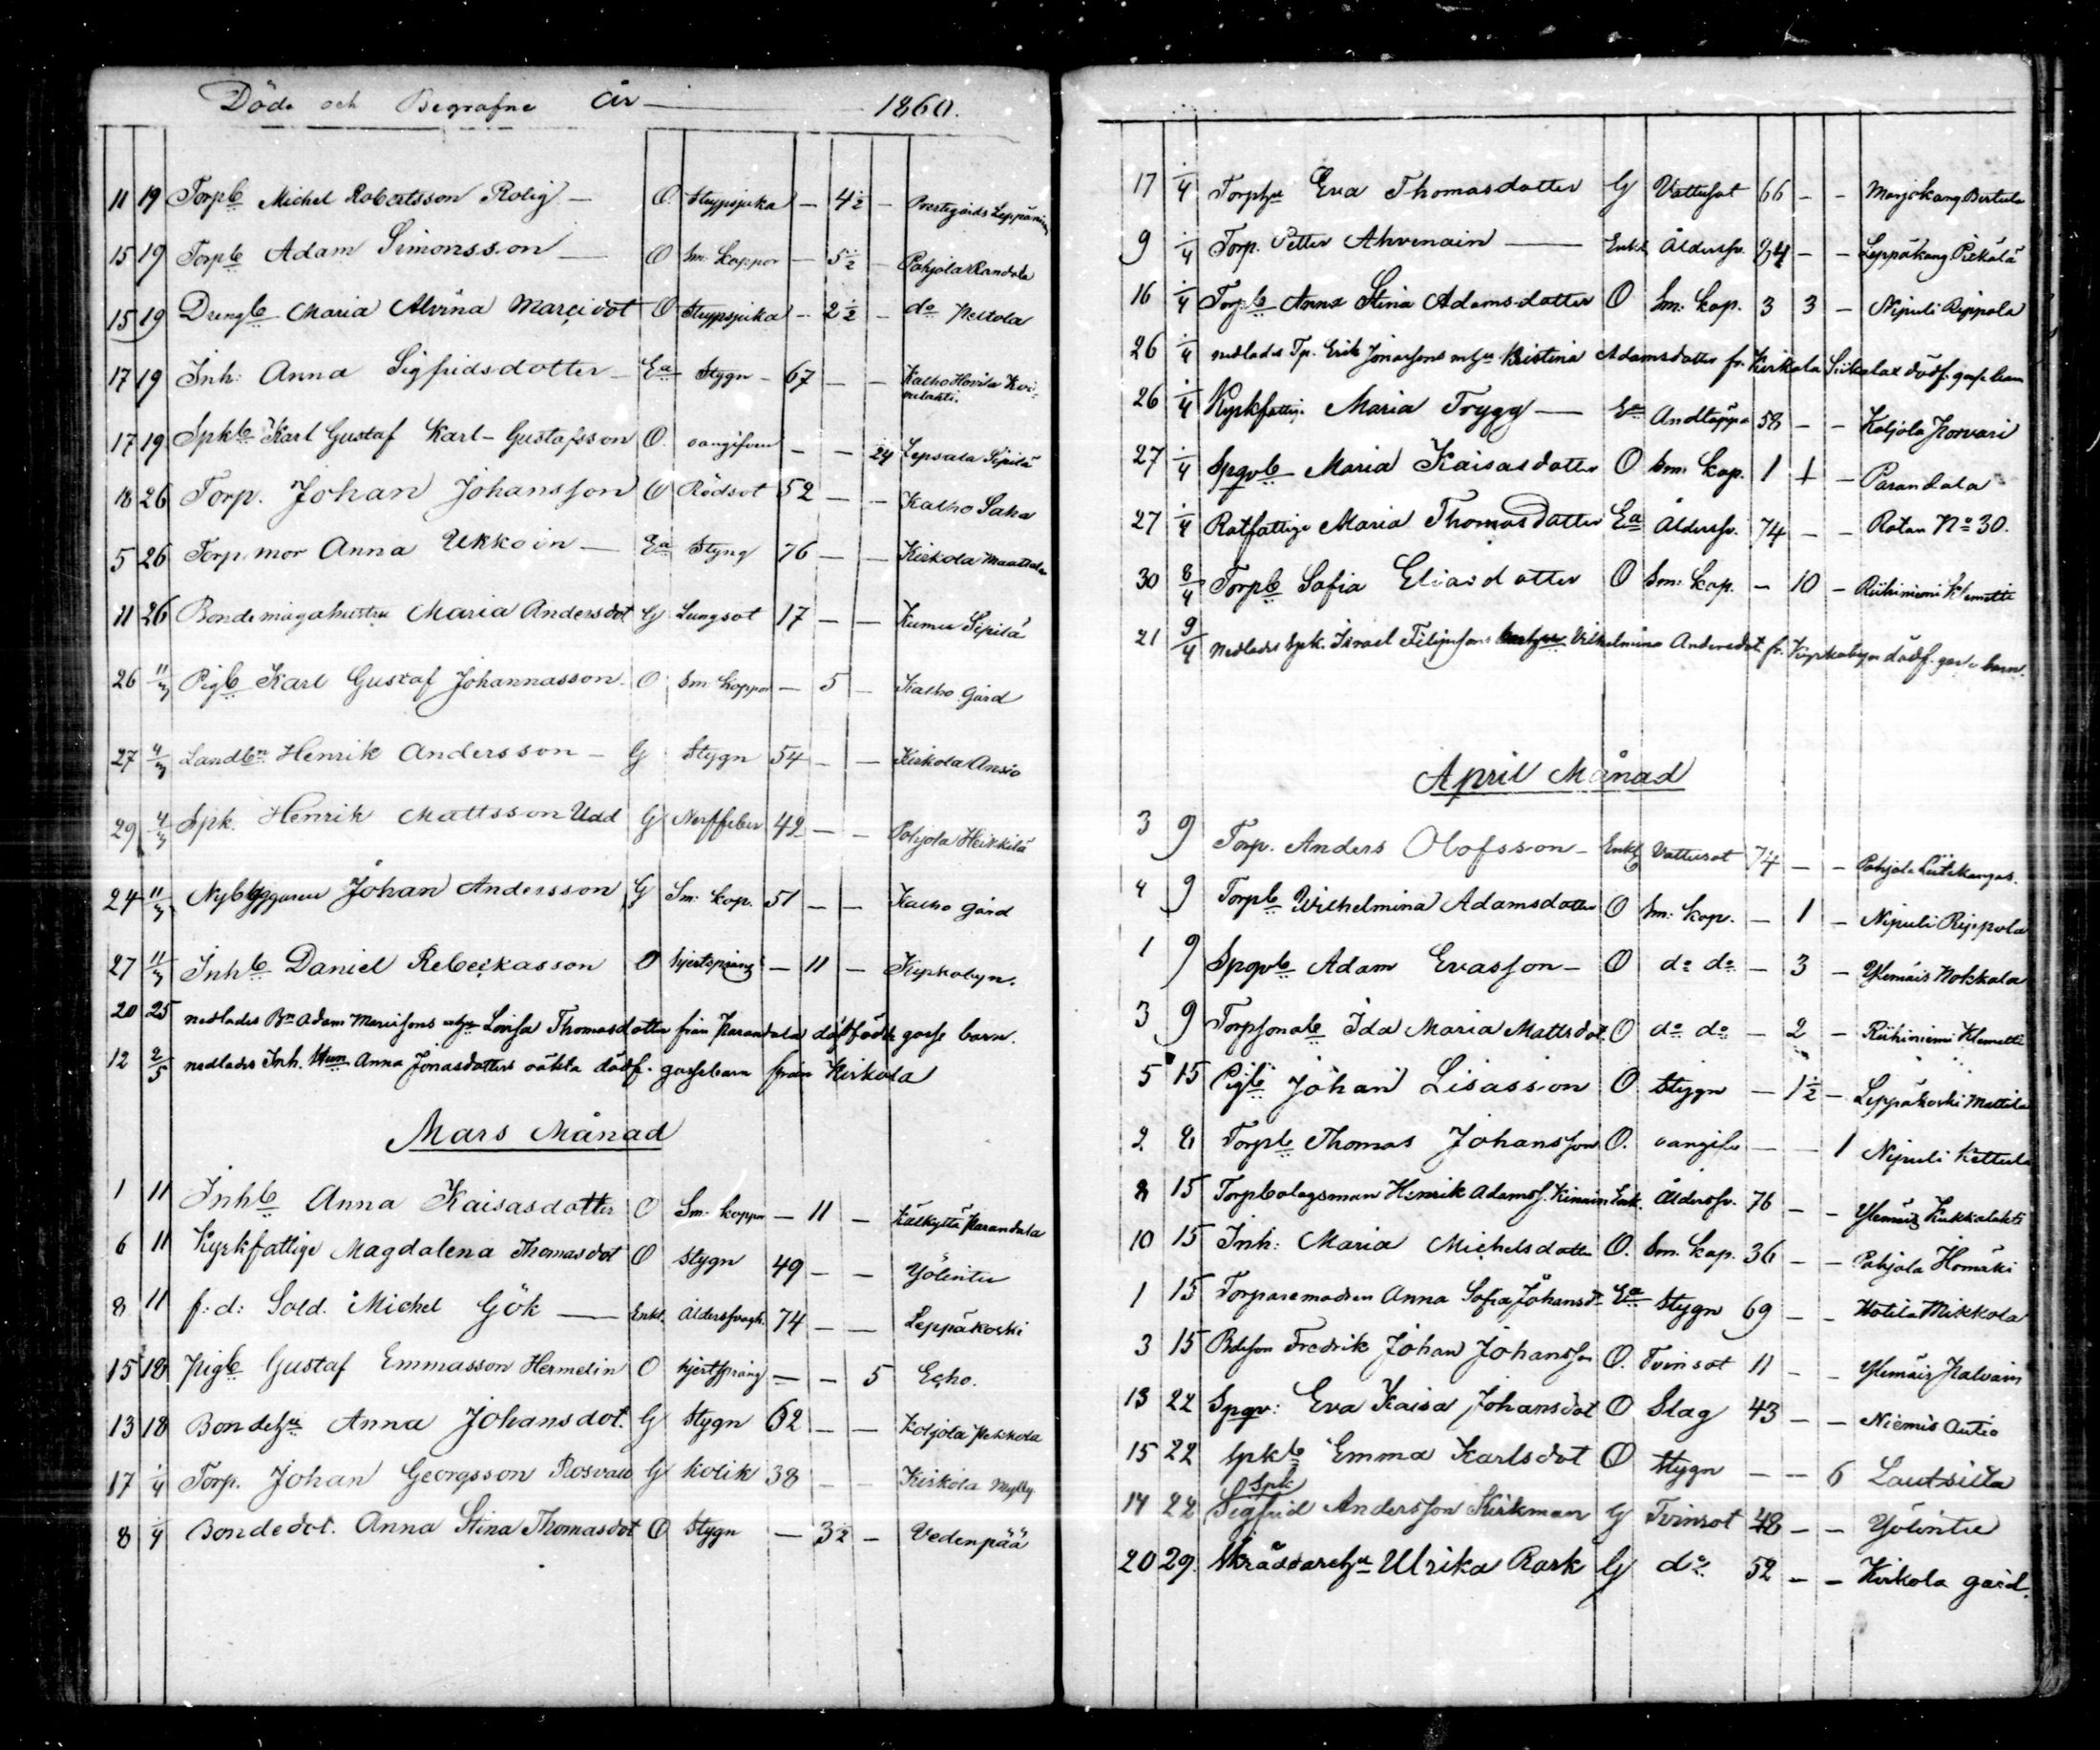 Döde och Begrafne År 1860.
11 19 Torpb Michel Robertsson Rolig — O. Strypsjuka — 4½ — Prestgårds Leppäniemi
15 19 Torpb Adam Simonsson — O Sm: koppor — 5½ — Pohjola Randola
15 19 Drengb Maria Alvina Marcidot O Strypsjuka — 2½ — do Pestola
17 19 Inh: Anna Sigfridsdotter — Ea Stygn — 67 — — Kalho Hovila
17 19 Spkb Karl Gustaf Karl-Gustafsson O. oangifven — — 24 Lepsala Sipilä
18 26 Torp. Johan Johansson O Rödsot 52 — — Kalho Saha
5 26 Torp. mor Anna Ukkoin — Ea Styng 76 — — Kirkola Maattala
11 26 Bonde mågahustru Maria Andersdot G Lungsot 17 — — Kumu Sipilä
26 11/3 Pigb Karl Gustaf Johannasson — O Sm: koppor — 5 — Kalho Gård
27 4/3 Landbn Henrik Andersson — G Stygn 54 — — Kirkola Ansio
29 4/3 Spk. Henrik Mattsson Udd G Nerffeber 42 — — Pohjola Heikkilä
24 11/3 Nybyggaren Johan Andersson G Sm: kop. 51 — — Kalho gård
27 11/3 Inhb Daniel Rebeckasson O hjertsprång — 11 — Kyrkobyn.
20 25 nedlades Bn Adam Mariisons Lovisa Thomasdotter från Parandala dödfödde gosse barn.
12 2/5 nedlades Inh. Anna Jonasdotters oäkta dödf. gossebarn från Kirkola
Mars Månad
1 11 Inhb Anna Kaisasdotter O Sm: koppor — 11 — Kälkyttä Parandala
6 11 Kyrkfattige Magdalena Thomasdot O Stygn 49 — — Yölintu
8 11 f: d: Sold. Michel Gök — Enkl. Åldersfvagh. 74 — — Leppäkoski
15 18 Pigb Gustaf Emmasson Hermelin O hjertsprång — — 5 Echo.
13 18 Bondehu Anna Johansdot. G Stygn 62 — — Koljola Pekkola
17 1/4 Torp. Johan Georgsson Rosvall G Kolik 38 — — Kirkola Mylly
8 1/4 Bondedot. Anna Stina Thomasdot O Stygn — 3½ — Vedenpää
17 1/4 Torphu Eva Thomasdotter G Vattusot 66 — — Marjokang Bertula
9 1/4 Torp. Petter Ahvenain — Enkl. Åldersfv. 84 — — Leppäkang Piekälä
16 1/4 Torpb Anna Stina Adamsdotter O Sm: kop. 3 3 — Nipuli Reppola
26 1/4 nedlades Tp. Erik Jonassons Kristina Adamsdotter fr. Kirkola dödf. gosse barn
26 1/4 Kyrkfattig. Maria Trygg — Ea Andtäppa 58 — — Koljola Horvari
27 1/4 Spgvb Maria Kaisasdotter O Sm: kop. 1 1 — Parandala
27 1/4 Rotfattige Maria Thomasdotter Ea Åldersfv. 74 — — Rotan No 30.
30 8/4 Torpb Sofia Eliasdotter O Sm: kop. — 10 — Riihiniemi Klemetti
21 9/4 nedlades Spk. Israel Filipssons Vilhelmina Andersdot fr. Kyrkobyn dödf. gosse barn.
April Månad
3 9 Torp. Anders Olofsson — Enkl. Vattusot 74 — — Pohjola Leitikangas.
4 9 Torpb Wilhelmina Adamsdotter O Sm: kop. — 1 — Nipuli Reppola
1 9 Spgvb Adam Evasson — O do do — 3 — Ylemäis Nokkala
3 9 Torpsonab Ida Maria Mattsdot. O do do — 2 — Riihiniemi Klemetti
5 15 Pigb Johan Lisasson O. Stygn — 1½ — Leppäkoski Mattila
2 8 Torpb Thomas Johansson O. oangifv — — 1 Nipuli Kettula
8 15 Torpbolagsman Henrik Adamss. Kinain Enk. Åldersfv. 76 — — Ylemäis Kukkolahti
10 15 Inh: Maria Michelsdotter O. Sm. kop. 36 — — Pohjola Homäki
1 15 Torparemodren Anna Sofia Johansdr Ea Stygn 69 — — Hotila Mikkola
3 15 Bdeson Fredrik Johan Johansson O. Tvinsot 11 — — Ylemäis Palvain
13 22 Spgv: Eva Kaisa Johansdot O Slag 43 — — Niemis Autio
15 22 Spkb Emma Karlsdot O Stygn — — 6 Lautsilta
14 22 Spk Sigfrid Andersson Kirkman G Tvinsot 48 — — Yölintu
20 29. Skräddarehu Ulrika Rask G do 52 — — Kirkola gård.